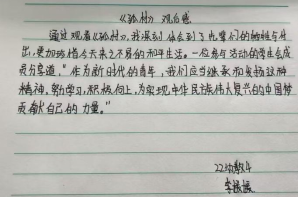 《孤村》观后感
通过观看《孤村》,我深刻体会到了先辈们的牺牲与付
出,更加珍惜今天来之不易的和平生活。一位参与活动的学生会成
员写道,“作为新时代的青年,我们应当继承和发扬这种
精神,勤学习,积极向上,为实现中华民族伟大复兴的中国梦
贡献自己的力量。”
22幼教4
李